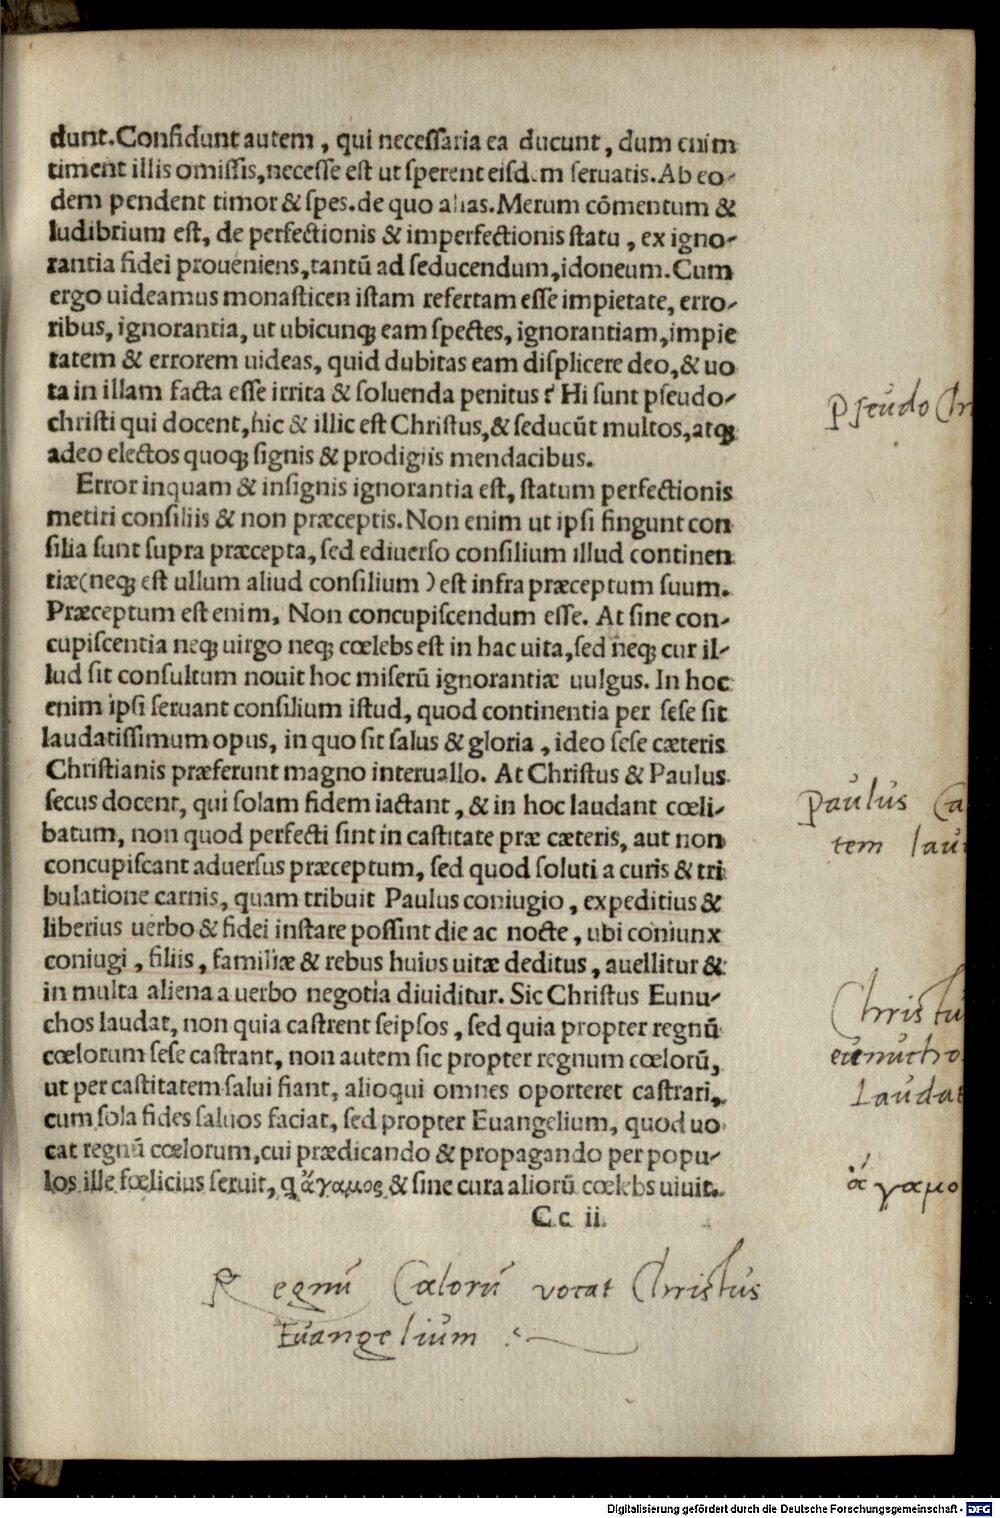 dunt. Confidunt autem, qui necessaria ea ducunt, dum enim
timent illis omissis, necesse est ut sperent eisdem seruatis. Ab eo-
dem pendent timor & spes. de quo alias. Merum cōmentum &
ludibrium est, de perfectionis & imperfectionis statu, ex igno-
rantia fidei proueniens, tantū ad seducendum, idoneum. Cum
ergo uideamus monasticen istam refertam esse impietate, erro-
ribus, ignorantia, ut ubicunꝗ eam spectes, ignorantiam, impie
tatem & errorem uideas, quid dubitas eam displicere deo, & uo
ta in illam facta esse irrita & soluenda penitus? Hi sunt pseudo-
christi qui docent, hic & illic est Christus, & seducūt multos, atꝗ
adeo electos quoꝗ signis & prodigiis mendacibus.
Error inquam & insignis ignorantia est, statum perfectionis
metiri consiliis & non præceptis. Non enim ut ipsi fingunt con
silia sunt supra præcepta, sed ediuerso consilium illud continen
tiæ (neꝗ est ullum aliud consilium) est infra præceptum suum.
Præceptum est enim, Non concupiscendum esse. At sine con-
cupiscentia neꝗ uirgo neꝗ cœlebs est in hac uita, sed neꝗ cur il-
lud sit consultum nouit hoc miserū ignorantiæ uulgus. In hoc
enim ipsi seruant consilium istud, quod continentia per sese sit
laudatissimum opus, in quo sit salus & gloria, ideo sese cæteris
Christianis præferunt magno interuallo. At Christus & Paulus
secus docent, qui solam fidem iactant, & in hoc laudant cœli-
batum, non quod perfecti sint in castitate præ cæteris, aut non
concupiscant aduersus præceptum, sed quod soluti a curis & tri
bulatione carnis, quam tribuit Paulus coniugio, expeditius &
liberius uerbo & fidei instare possint die ac nocte, ubi coniunx
coniugi, filiis, familiæ & rebus huius uitæ deditus, auellitur &
in multa aliena a uerbo negotia diuiditur. Sic Christus Eunu-
chos laudat, non quia castrent seipsos, sed quia propter regnū
cœlorum sese castrant, non autem sic propter regnum cœlorū,
ut per castitatem salui fiant, alioqui omnes oporteret castrari,
cum sola fides saluos faciat, sed propter Euangelium, quod uo
cat regnū cœlorum, cui prædicando & propagando per popu-
los ille fœlicius seruit, q ἄγαμος & sine cura aliorū cœlebs uiuit.
Cc ii
Pseudo Chr
Paulus Ca
tem lau
Christu
eunucho
Laudat
ἄγαμο
Regnū Cœlorū vocat Christus
Euangelium
Digitalisierung gefördert durch die Deutsche Forschungsgemeinschaft - DFG